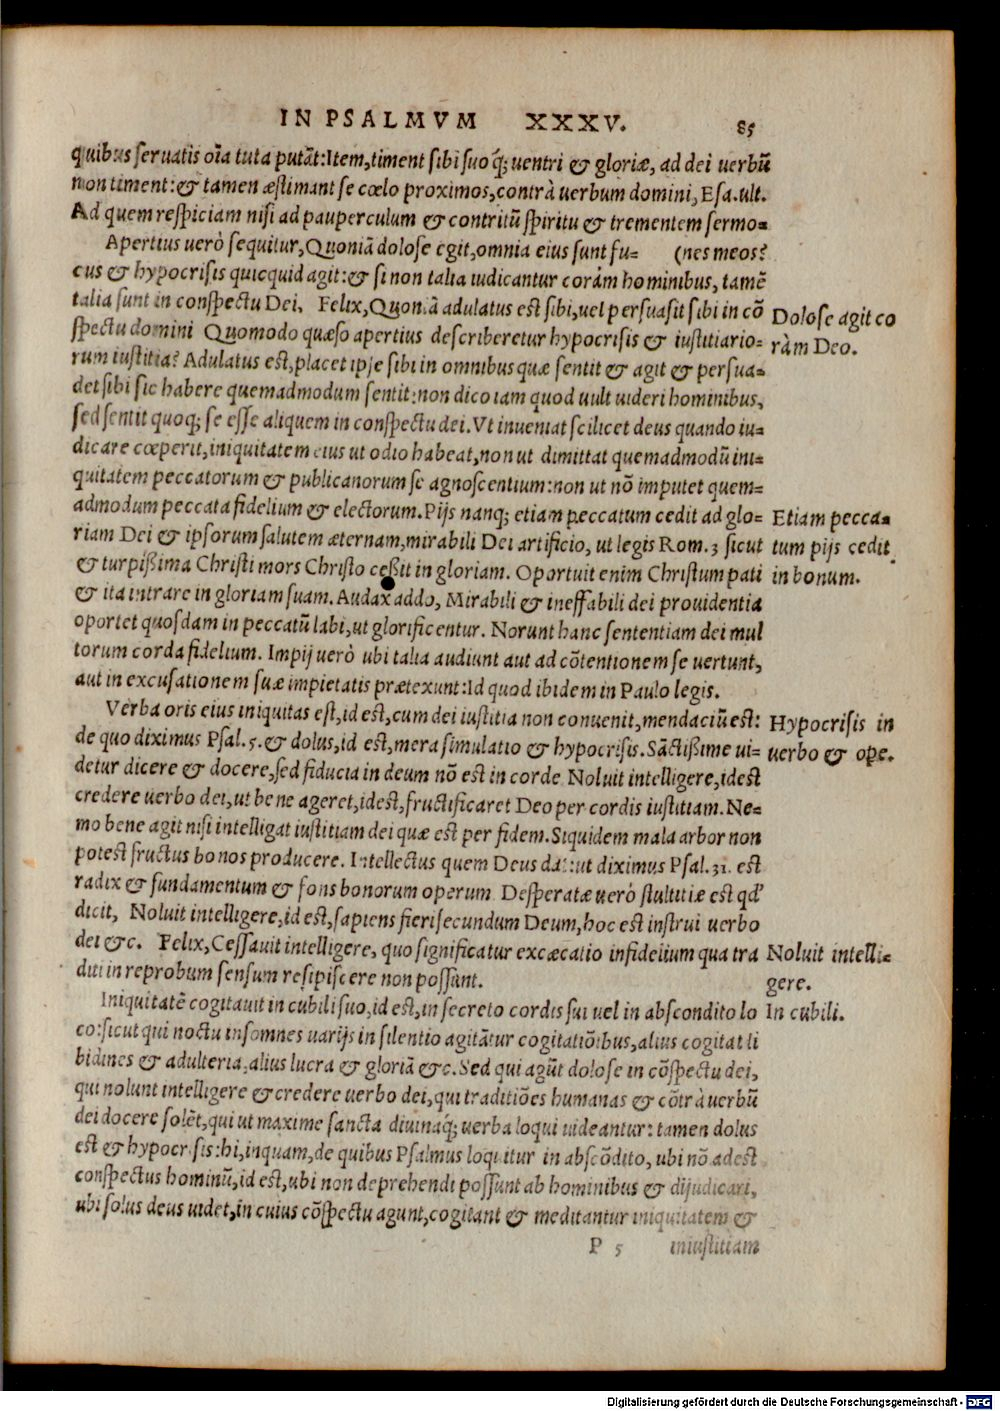 IN PSALMVM XXXV. 85
quibus seruatis oĩa tuta putãt: Item, timent sibi suoq́; uentri & gloriæ, ad dei uerbũ
non timent: & tamen æstimant se cœlo proximos, contrà uerbum domini, Esa. ult.
Ad quem respiciam nisi ad pauperculum & contritũ spiritu & trementem sermo-
Apertius uerò sequitur, Quoniã dolose egit, omnia eius sunt fu- (nes meos?
cus & hypocrisis quicquid agit: & si non talia iudicantur coràm hominibus, tamẽ
talia sunt in conspectu Dei. Felix, Quoniã adulatus est sibi, uel persuasit sibi in cõ
spectu domini Quomodo quæso apertius describeretur hypocrisis & iustitiario-
rum iustitia? Adulatus est, placet ipse sibi in omnibus quæ sentit & agit & persua-
det sibi sic habere quemadmodum sentit: non dico iam quod uult uideri hominibus,
sed sentit quoq; se esse aliquem in conspectu dei. Vt inueniat scilicet deus quando iu-
dicare cœperit, iniquitatem eius ut odio habeat, non ut dimittat quemadmodũ ini-
quitatem peccatorum & publicanorum se agnoscentium: non ut nõ imputet quem-
admodum peccata fidelium & electorum. Pijs nanq; etiam peccatum cedit ad glo-
riam Dei & ipsorum salutem æternam, mirabili Dei artificio, ut legis Rom. 3 sicut
& turpißima Christi mors Christo ceßit in gloriam. Oportuit enim Christum pati
& ita intrare in gloriam suam. Audax addo, Mirabili & ineffabili dei prouidentia
oportet quosdam in peccatũ labi, ut glorificentur. Norunt hanc sententiam dei mul
torum corda fidelium. Impij uerò ubi talia audiunt aut ad cõtentionem se uertunt,
aut in excusationem suæ impietatis prætexunt: Id quod ibidem in Paulo legis.
Verba oris eius iniquitas est, id est, cum dei iustitia non conuenit, mendaciũ est:
de quo diximus Psal. 5. & dolus, id est, mera simulatio & hypocrisis. Sãctißime ui-
detur dicere & docere, sed fiducia in deum nõ est in corde Noluit intelligere, idest
credere uerbo dei, ut bene ageret, idest, fructificaret Deo per cordis iustitiam. Ne-
mo bene agit nisi intelligat iustitiam dei quæ est per fidem. Siquidem mala arbor non
potest fructus bonos producere. Intellectus quem Deus dat: ut diximus Psal. 31. est
radix & fundamentum & fons bonorum operum. Desperatæ uerò stultitiæ est qđ
dicit, Noluit intelligere, id est, sapiens fieri secundum Deum, hoc est instrui uerbo
dei &c. Felix, Cessauit intelligere, quo significatur excæcatio infidelium qua tra
diti in reprobum sensum resipiscere non possunt.
Iniquitatẽ cogitauit in cubili suo, id est, in secreto cordis sui uel in abscondito lo
co: sicut qui noctu insomnes uarijs in silentio agitãtur cogitatiõibus, alius cogitat li
bidines & adulteria, alius lucra & gloriã &c. Sed qui agũt dolose in cõspectu dei,
qui nolunt intelligere & credere uerbo dei, qui traditiões humanas & cõtrà uerbũ
dei docere solẽt, qui ut maxime sancta diuinaq́; uerba loqui uideantur: tamen dolus
est & hypocrisis: hi, inquam, de quibus Psalmus loquitur in abscõdito, ubi nõ adest
conspectus hominũ, id est, ubi non deprehendi possunt ab hominibus & dijudicari,
ubi solus deus uidet, in cuius cõspectu agunt, cogitant & meditantur iniquitatem &
P 5 iniustitiam
Dolose agit co
ràm Deo.
Etiam pecca-
tum pijs cedit
in bonum.
Hypocrisis in
uerbo & ope.
Noluit intelli-
gere.
In cubili.
Digitalisierung gefördert durch die Deutsche Forschungsgemeinschaft - DFG